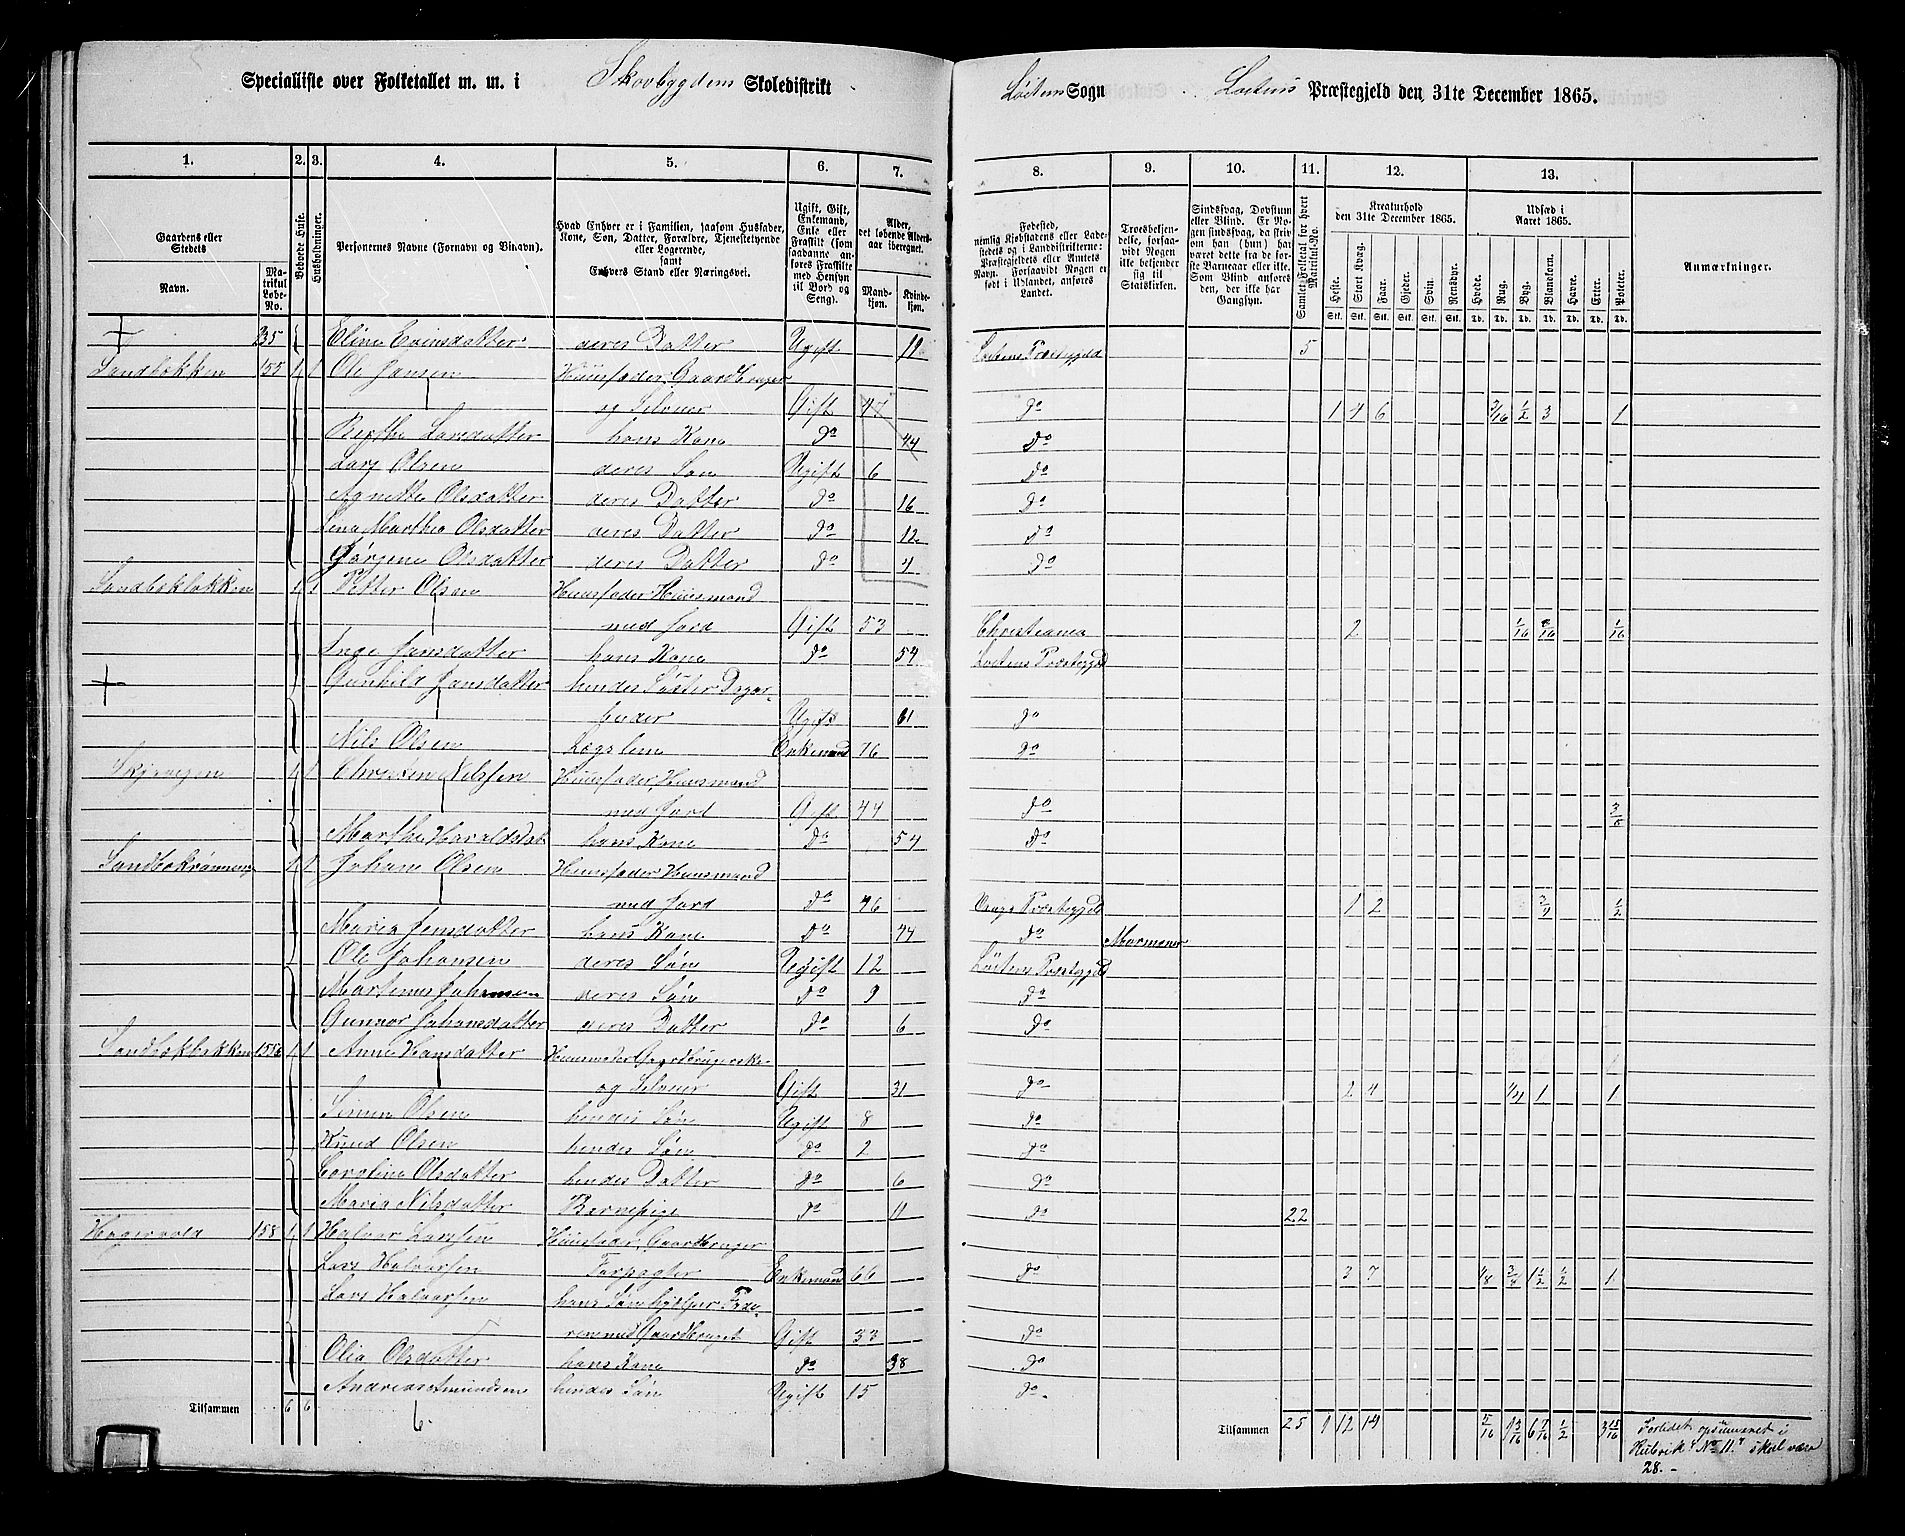 Specialliste over Folketallet m. m. i Skovbygdens Skoledistrikt Løitens Sogn Loitens Præstegjeld den 31te December 1865.
1. 2. 3. 4. 5. 6. 7. 8. 9. 10. 11. 12. 13.
Gaardens eller Stedets
Navn. Matrikul Løbe-No.
Beboede Huse.
Husholdninger.
Personernes Navne (Fornavn og Tilnavn).
Hvad Enhver er i Familien, saasom Husfader, Kone, Søn, Datter, Forældre, Tjenestetyende eller Logerende, samt Enhvers Stand eller Næringsvei.
Ugift, Gift, Enkemand, Enke eller Fraskilt (som saadanne anføres Fraskilte med Hensyn til Bord og Seng).
Alder, det løbende Aldersaar iberegnet.
Mandkjøn. Kvindekjøn.
Fødested, nemlig Kjøbstadens eller Ladestedets og i Landdistrikterne: Præstegjeldets eller Amtets Navn. Forsaavidt Nogen er født i Udlandet, anføres Landet.
Troesbekjendelse, forsaavidt Nogen ille bekjender sig til Statskirken.
Sindssvag, Døvstum eller Blind. Er Nogen sindssvag, da skriv om han (hun) har været dette fra de første Barneaar eller ikke. Som Blind anføres den, der ikke har Gangsyn.
Samlet Folketal for hvert Matrikul-No.
Kreaturhold den 31te December 1865.
Heste. Stort Kvæg. Faar. Gjeder. Svin. Rensdyr.
Udsæd i Aaret 1865.
Hvede. Rug. Byg. Blandkorn. Havre. Erter. Poteter.
Anmærkninger.
Eline Evensdatter deres Datter Ugift Loitens Præstegjeld 5
Sandbækken 155 1 1 Ole Jansen Huusfader, Gaardbruger
og Selveier Gift 47 do 1 4 6 3/16 1/2 3 1
Berthe Larsdatter hans Kone do 44 do
Lars Olsen deres Søn Ugift 6 do
Agnethe Olsdatter deres Datter do 16 do
Lena Marthea Olsdatter deres Datter do 12 do
Jørgine Olsdatter deres Datter do 4 do
Sandbækløkken 1 1 Petter Olsen Huusfader Huusmand
med Jord Gift 53 Christiania 2 1/16 1/16
Inge Jansdatter hans Kone do 54 Loitens Præstegjeld
Gunhild Jansdatter hendes Søster Dagar-
beider Ugift 61 do
Nils Olsen Lægslem Enkemand 76 do
1 1 Christen Nilssen Huusfader, Huusmand
med Jord Gift 44 do
Marthe Haraldsdat hans Kone do 54 do
1 1 Johan Olsen Huusfader Huusmand
med Jord do 46 Præstegjeld 1 2 3/4 1/2
Maria Jensdatter hans Kone do 44 do Mormoner
Ole Johansen deres Søn Ugift 12 Løitens Præstegjeld
Martinus Johansen deres Søn do 9 do
Gunnor Johansdatter deres Datter do 6 do
Sandbækbakken 1 1 Anne Hansdatter Huusmoder Gaardbrugerske
og Selveier Gift 31 do 2 4 1/4 1 1
Simen Olsen hendes Søn Ugift 8 do
Knud Olsen hendes Søn do 2 do
Caroline Olsdatter hendes Datter do 6 do
Maria Nilsdatter Barnepige do 11 do 22
158 1 1 Halvor Larssen Huusfader, Gaardbruger
Forpagter Enkemand 66 do 3 7 1/8 3/4 1 1/2 1/2 1
Lars Halvorsen hans Søn hjelper Fade-
ren med Gaardbruget Gift 33 do
Olia Olsdatter hans Kone do 38 do
Andreas Amundsen hendes Søn Ugift 15 do
Tilsammen 6 6 6. Tilsammen 25 1 12 14 5/16 1 9/16 6 7/16 1/2 3 15/16
Folketallet opsummeret i
Rubrik "No 11" skal være
28.